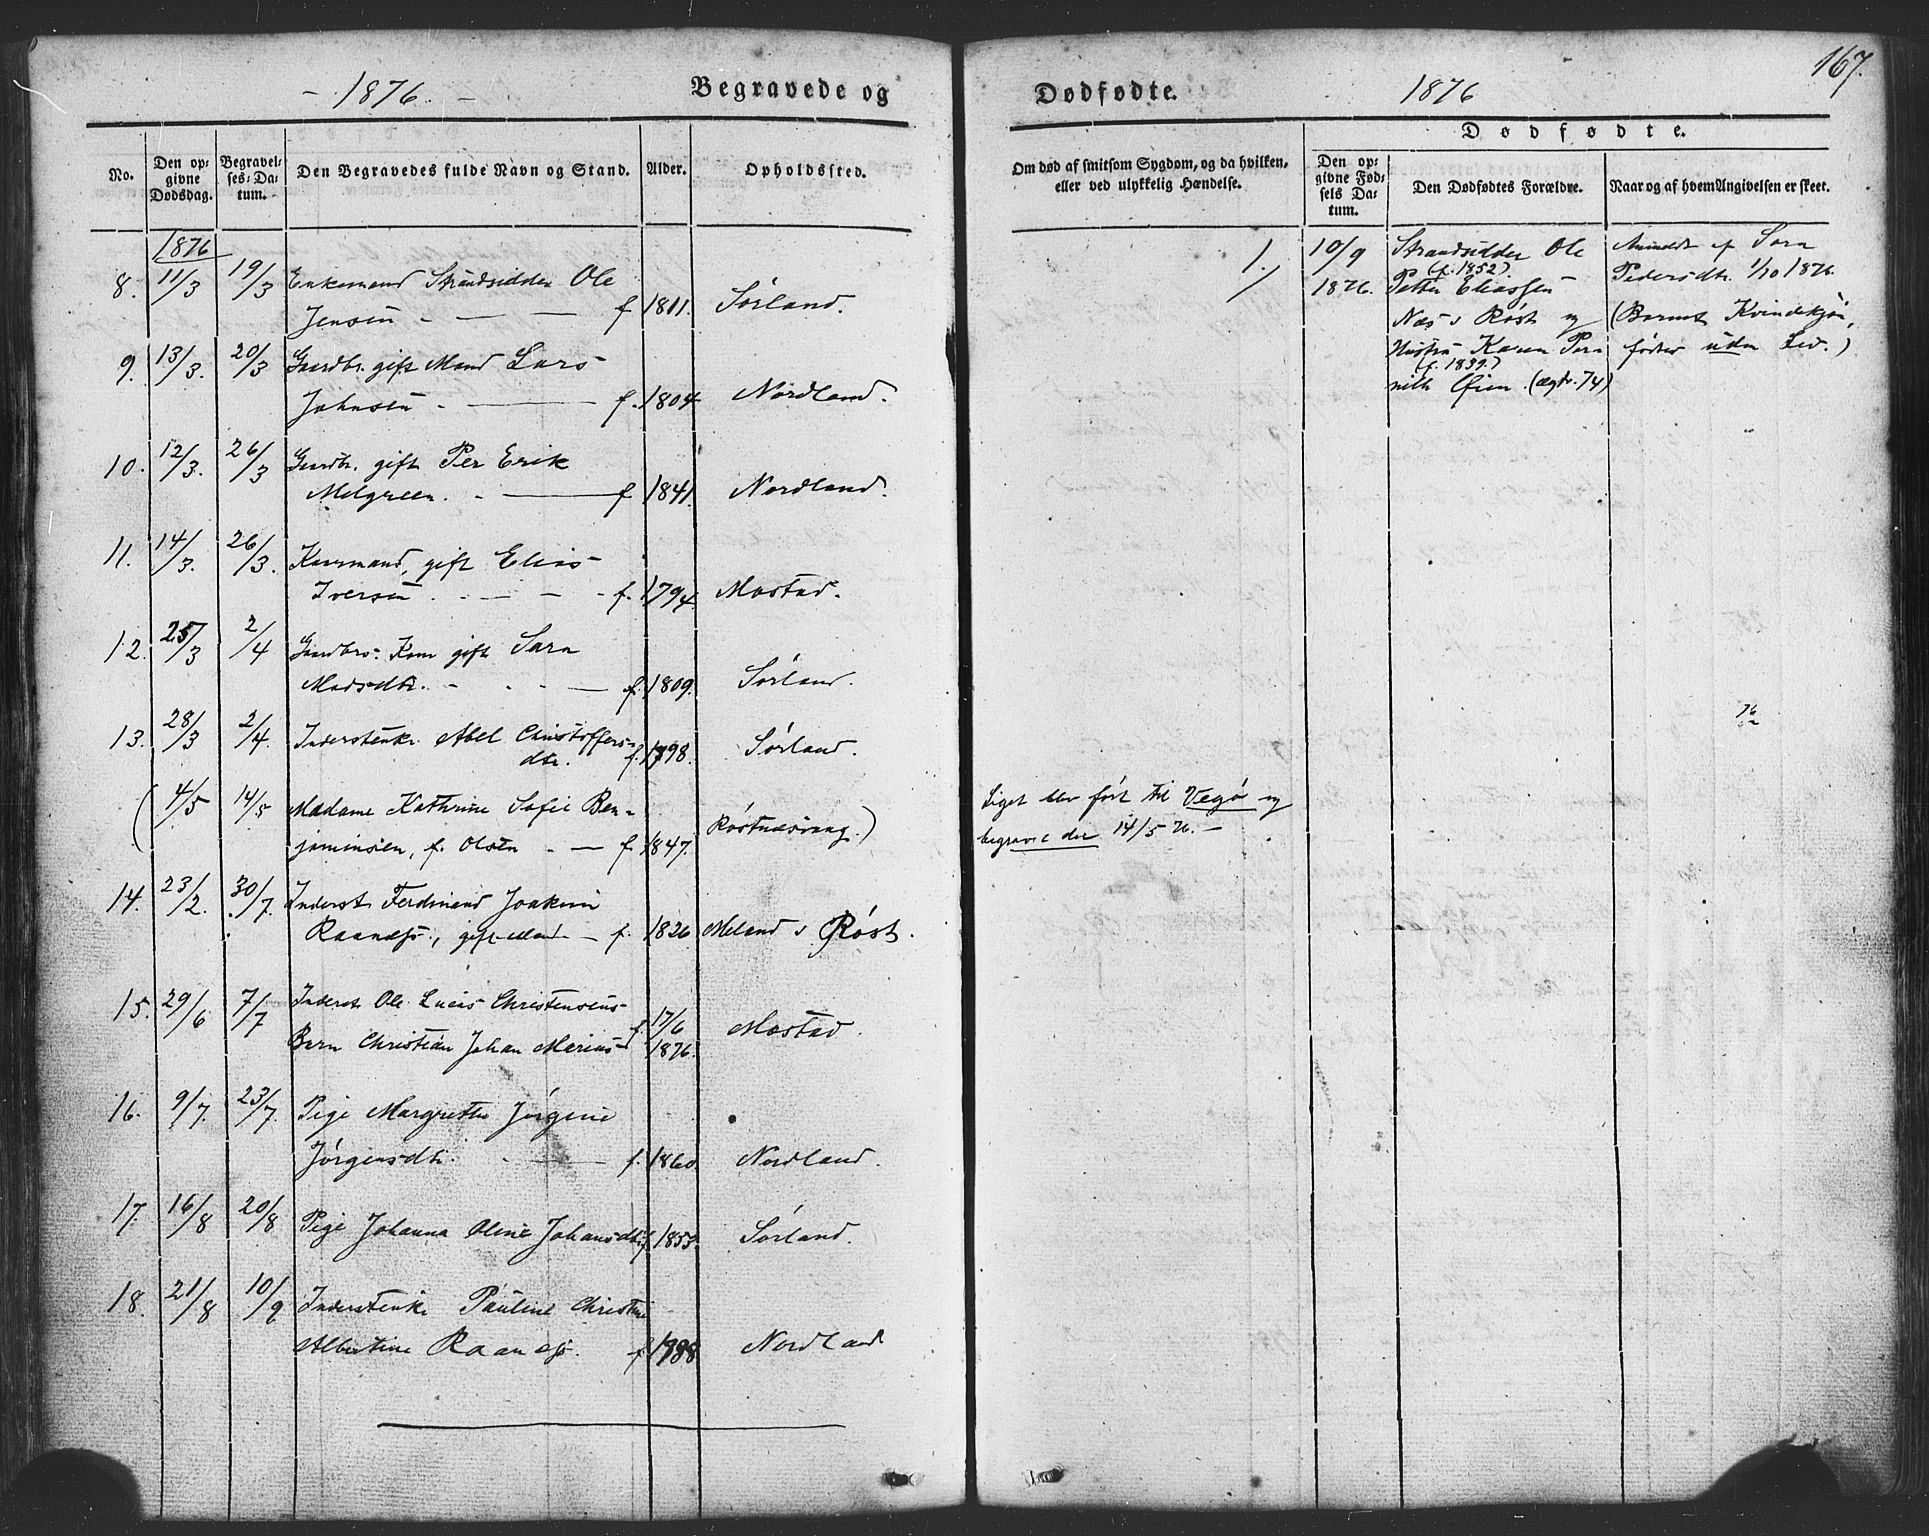 167.
- 1876. -
Begravede og
Dødfødte.
1876
No.
Den op-
givne
Dødsdag.
Begravel-
ses-Da-
tum.
Den Begravedes fulde Navn og Stand.
Alder.
Opholdssted.
Om død af smitsom Sygdom, og da hvilken,
eller ved ulykkelig Hændelse.
Dødfødte.
Den op-
givne Fød-
sels Da-
tum.
Den Dødfødtes Forældre.
Naar og af hvem Angivelsen er skeet.
1876
8. 11/3 19/3 Enkemand Strandsidder Ole
Jensen - — — f 1811. Sørland.
9. 13/3. 20/3 Gaardbr. gift Mand Lars
Johnsen - — f. 1804. Nordland.
10. 12/3. 26/3 Gaardbr. gift Per Erik
Melgreen. - — f 1841. Nordland.
11. 14/3. 26/3. Kaarmand, gift Elias
Iversen . - — - f. 1794. Mostad.
12. 25/3 2/4 Gaardbrs. Kone gift Sara
Madsdtr. - . - — f. 1809. Sørland.
13. 28/3 2/4. Inderstenke Abel Christoffers-
dtr. f. 1798. Sørland.
( 4/5 14/5 Madame Kathrine Sofie Ben-
jaminsen, f. Olsen - — f. 1847. Røstnæsvaag.)
Liget blev ført til Vegø og
begravet der 14/5 76. -
14. 23/2. 30/7. Inderst Ferdinand Joakim
Raanæs., gift Mand — f. 1826 Meland i Røst.
15. 29/6 7/7 Inderst Ole Lucas Christensens
Barn Christian Johan Marius f. 17/6
1876. Mostad.
16. 9/7. 23/7. Pige Margrethe Jørgine
Jørgensdtr. . — f. 1860. Nordland.
17. 16/8 20/8 Pige Johanna Oline Johansdtr f. 1853. Sørland.
18. 21/8 10/9 Inderstenke Pauline Christine
Albertine Raanæs. f 1798 Nordland
1. 10/9
1876.
Strandsidder Ole
(f. 1852).
Petter Eliassen
Næs i Røst og
Hustru Karen Per
(f. 1839.)
nille Øien. (ægtv. 74)
Anmeldt af Sara
Pedersdtr. 1/10 1876.
(Barnet Kvindekjøn,
fødtes uden Liv.)
76